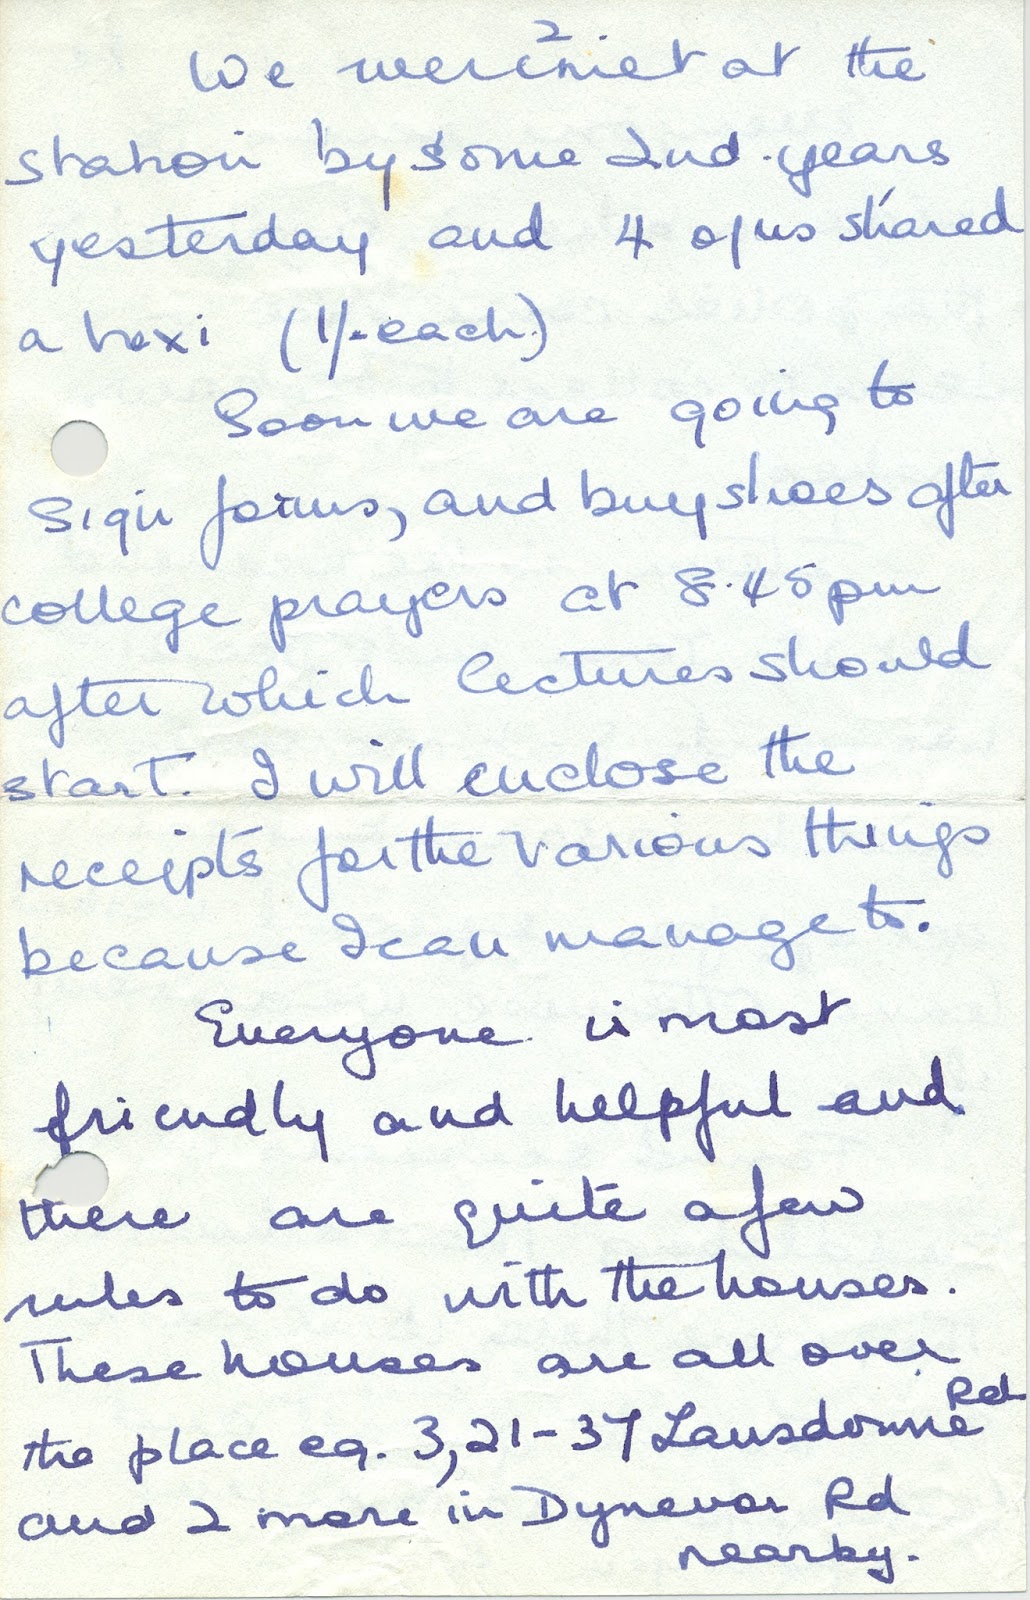 2.
We were met at the
station by some 2nd. years
yesterday and 4 of us shared
a taxi (1/- each)
Soon we are going to
sign forms, and buy shoes after
college prayers at 8.45pm
after which lectures should
start. I will enclose the
receipts for the various things
because I can manage to.
Everyone is most
friendly and helpful and
there are quite a few
rules to do with the houses.
These houses are all over
the place eg. 3, 21-37 Lansdowne Rd
and 2 more in Dynevor Rd
nearby.